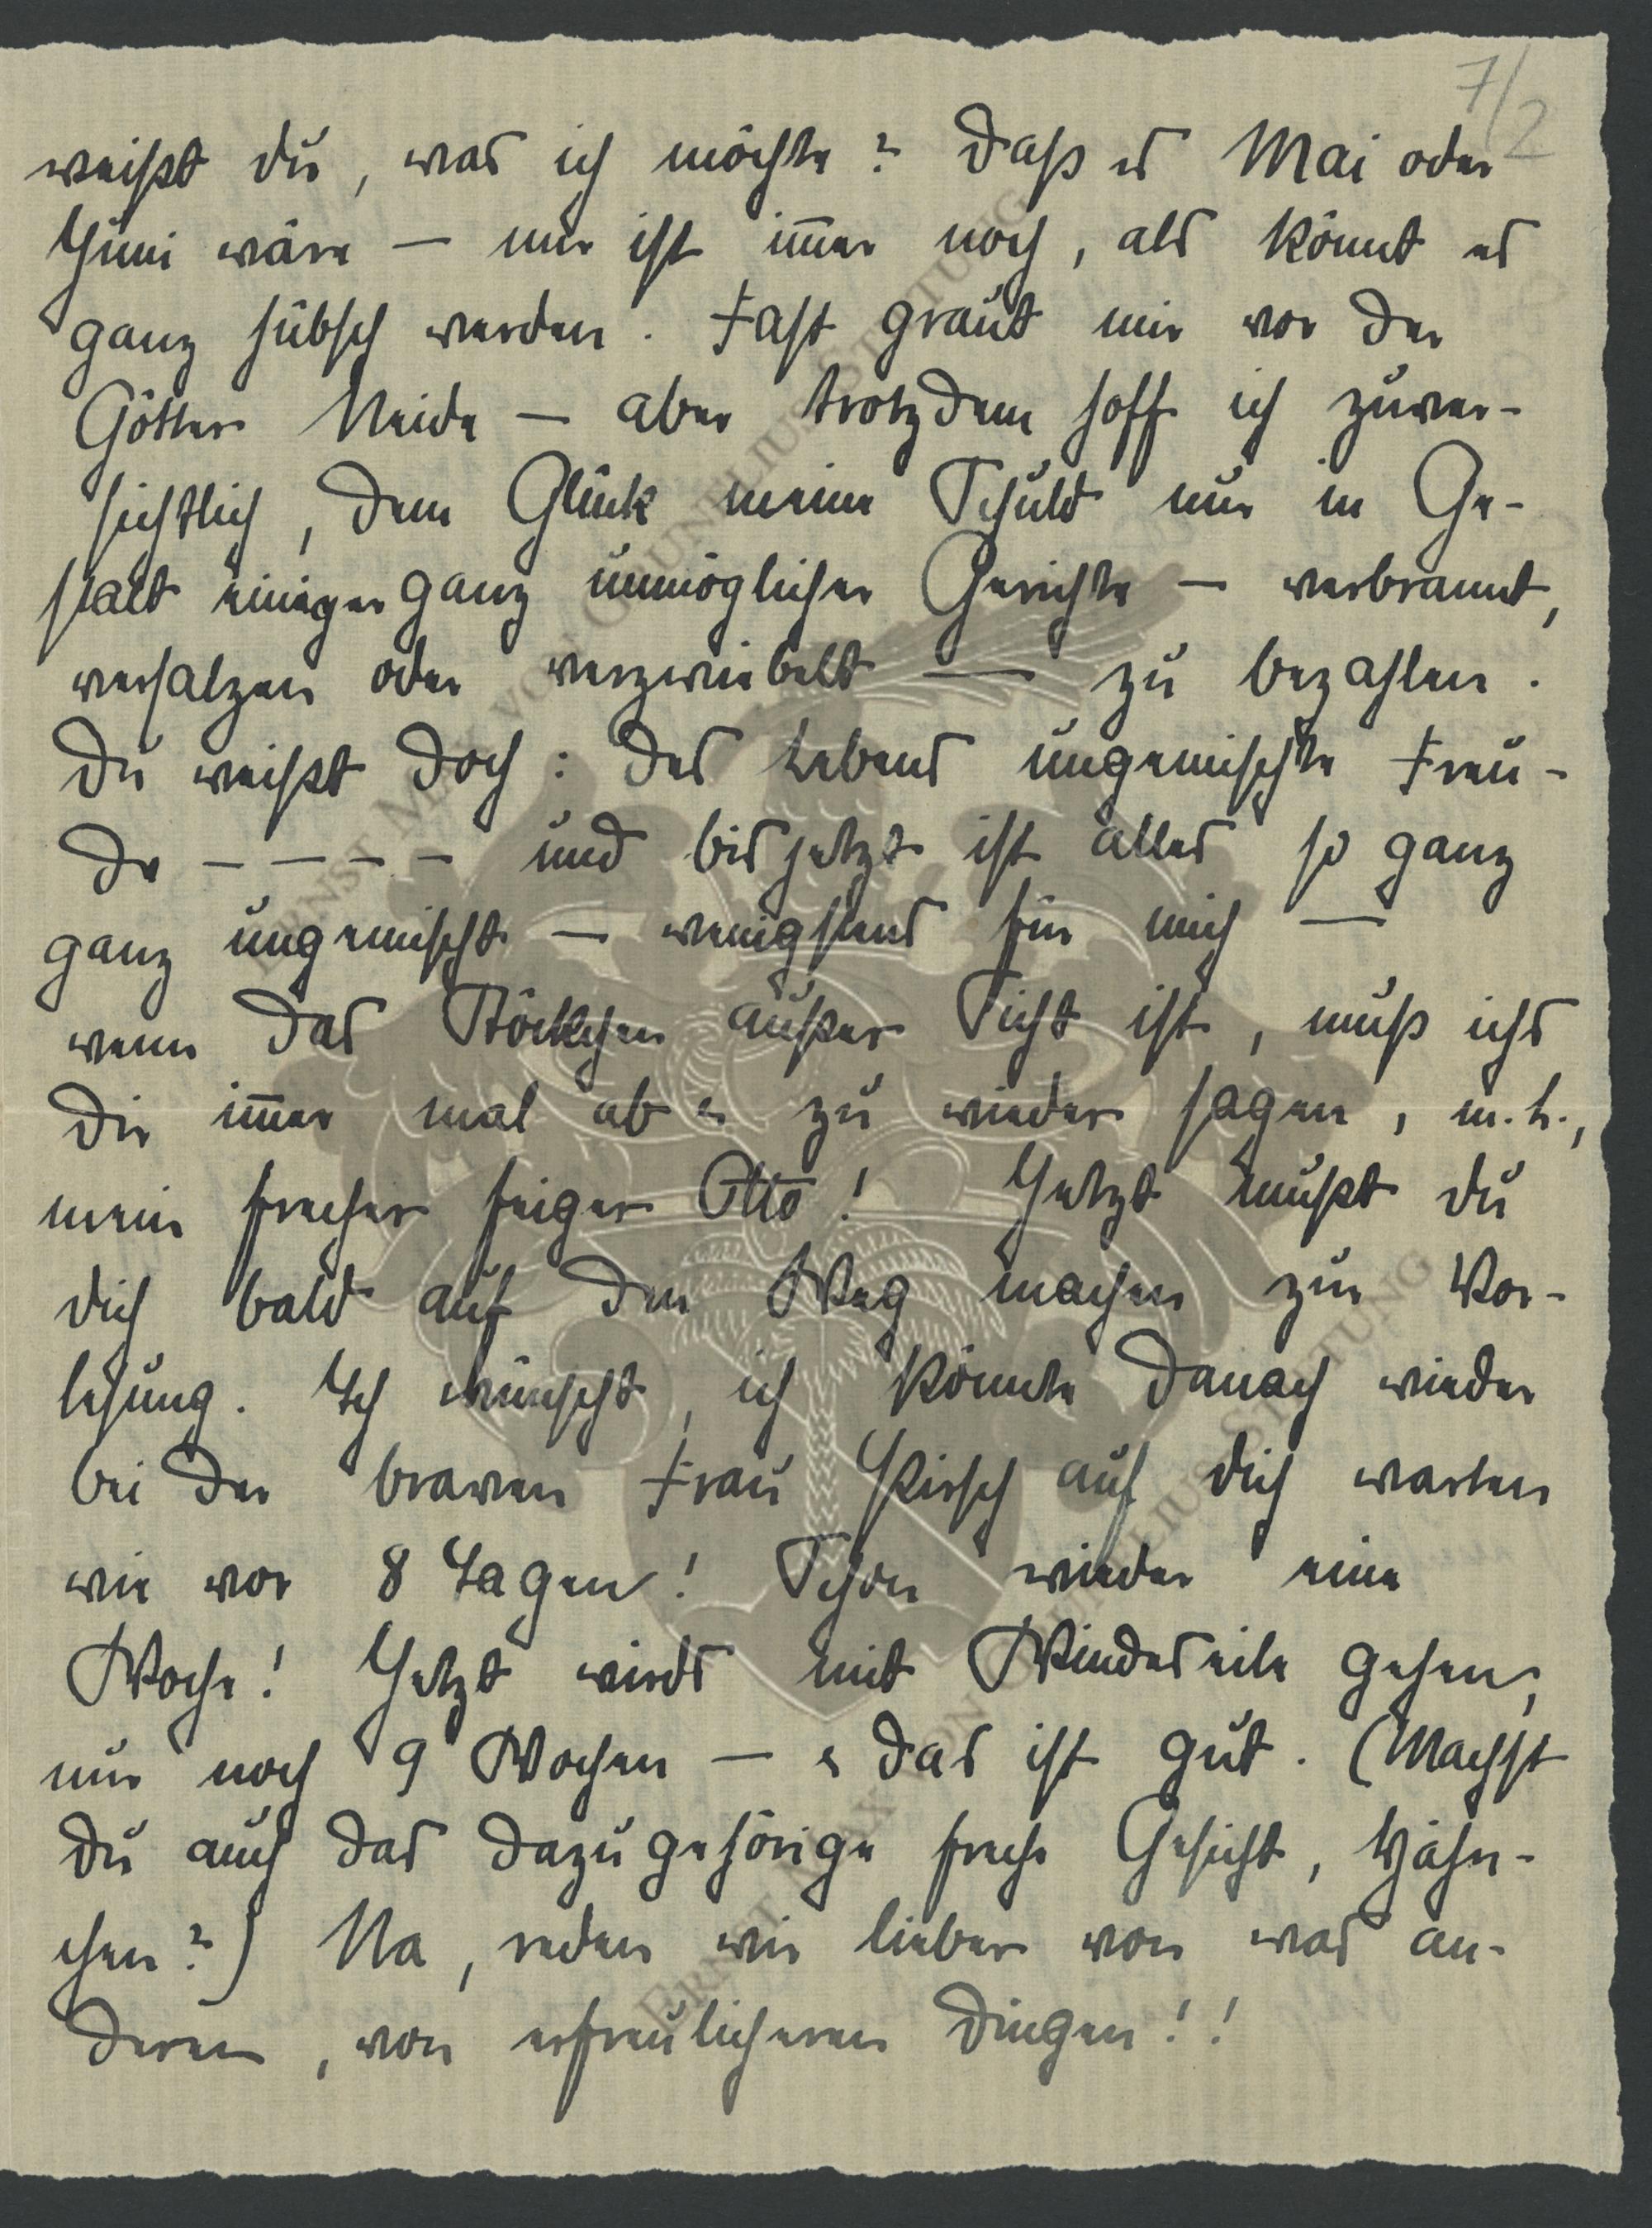 7/2
weißt du, was ich möchte? Daß es Mai oder
Juni wäre — mir ist im̄er noch, als könnt es
ganz hübsch werden. Fast graut mir vor der
Götter Neide — aber trotzdem hoff ich zuver-
sichtlich, dem Glück meine Schuld nur in Ge-
stalt einiger ganz unmöglicher Gerichte — verbrannt,
versalzen oder verzwiebelt — zu bezahlen.
Du weißt doch: des Lebens ungemischte Freu-
de - - - - und bis jetzt ist alles so ganz
ganz ungemischt — wenigstens für mich —
wenn das Böckchen außer Sicht ist, muß ichs
dir im̄er mal ab u. zu wieder sagen, m. L.,
mein frecher feiger Otto! Jetzt mußt du
dich bald auf den Weg machen zur Vor-
lesung. Ich wünscht, ich könnte danach wieder
bei der braven Frau Kirsch auf dich warten
wie vor 8 Tagen! Schon wieder eine
Woche! Jetzt wirds mit Windeseile gehen,
nur noch 9 Wochen — u. das ist gut. (Machst
du auch das dazugehörige freche Gesicht, Hähn-
chen?) Na, reden wir lieber von was an-
deren, von erfreulicheren Dingen!!
ERNST MAX VON GRUNELIUS STIFTUNG
ERNST MAX VON GRUNELIUS STIFTUNG